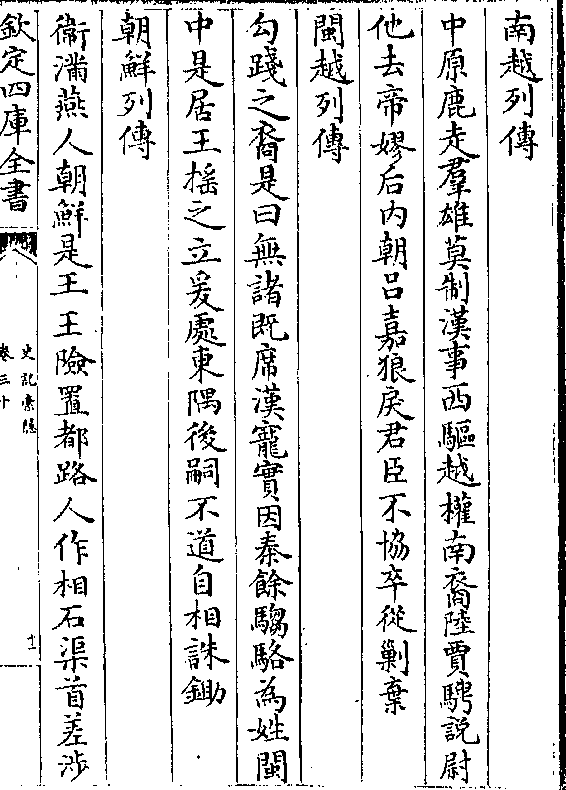 南越列傳
中原鹿走羣雄莫制漢事西驅越權南裔陸賈騁說尉
他去帝嫪后内朝吕嘉狼戾君臣不協卒從剿棄
閩越列傳
勾踐之裔是曰無諸既席漢寵實因秦餘騶駱為姓閩
中是居王揺之立爰處東隅後嗣不道自相誅鋤
朝鮮列傳
衛滿燕人朝鮮是王王險置都路人作相右渠首差涉
欽定四庫全書
史記索隱
卷三十